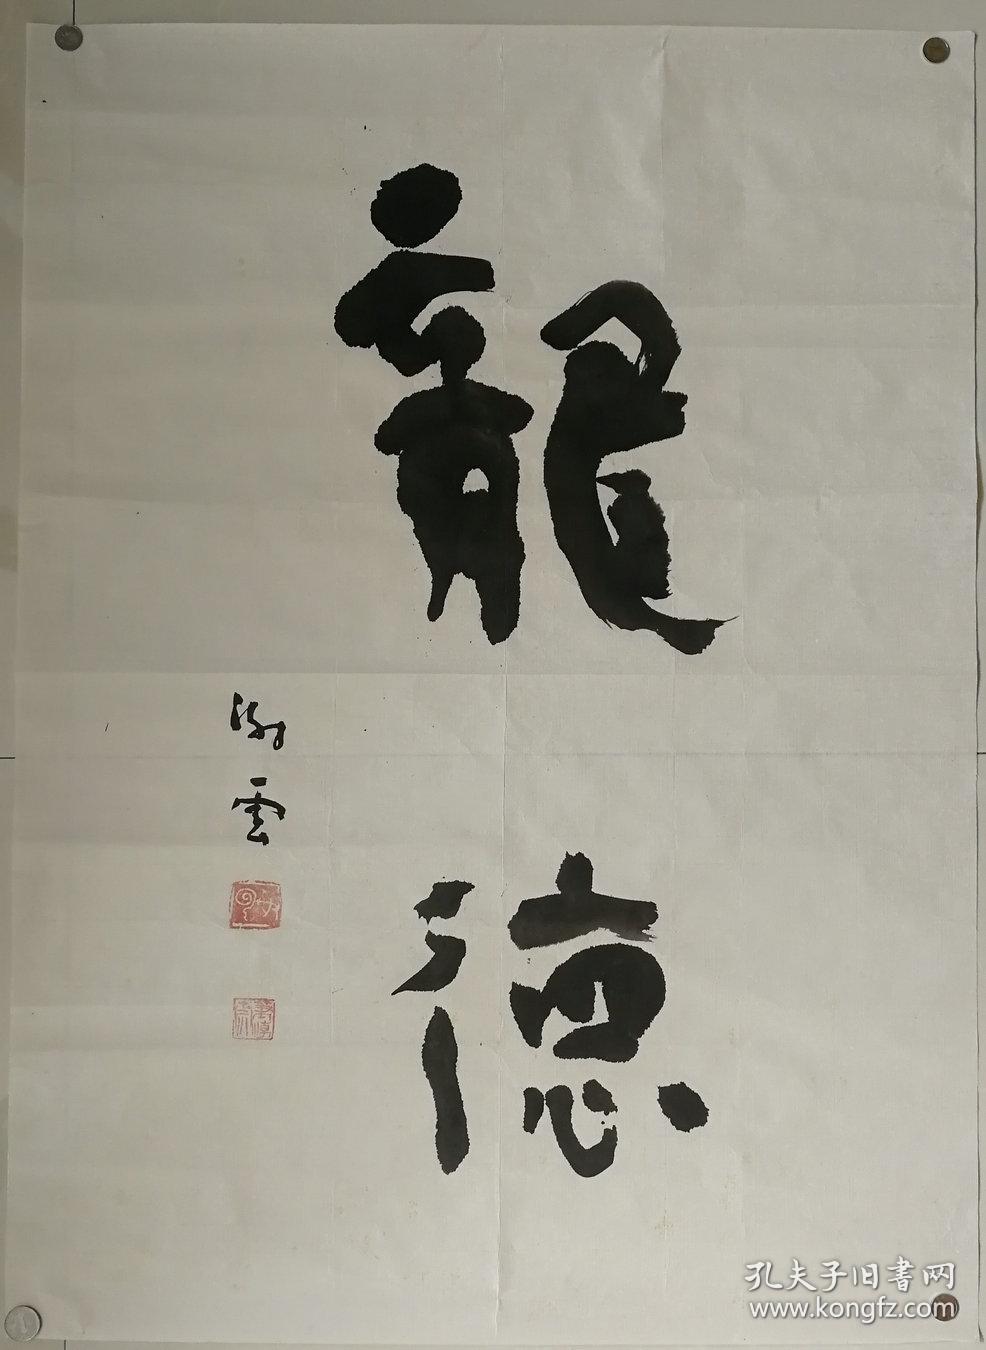 龍德
谢雲
孔夫子旧書网
www.kongfz.com